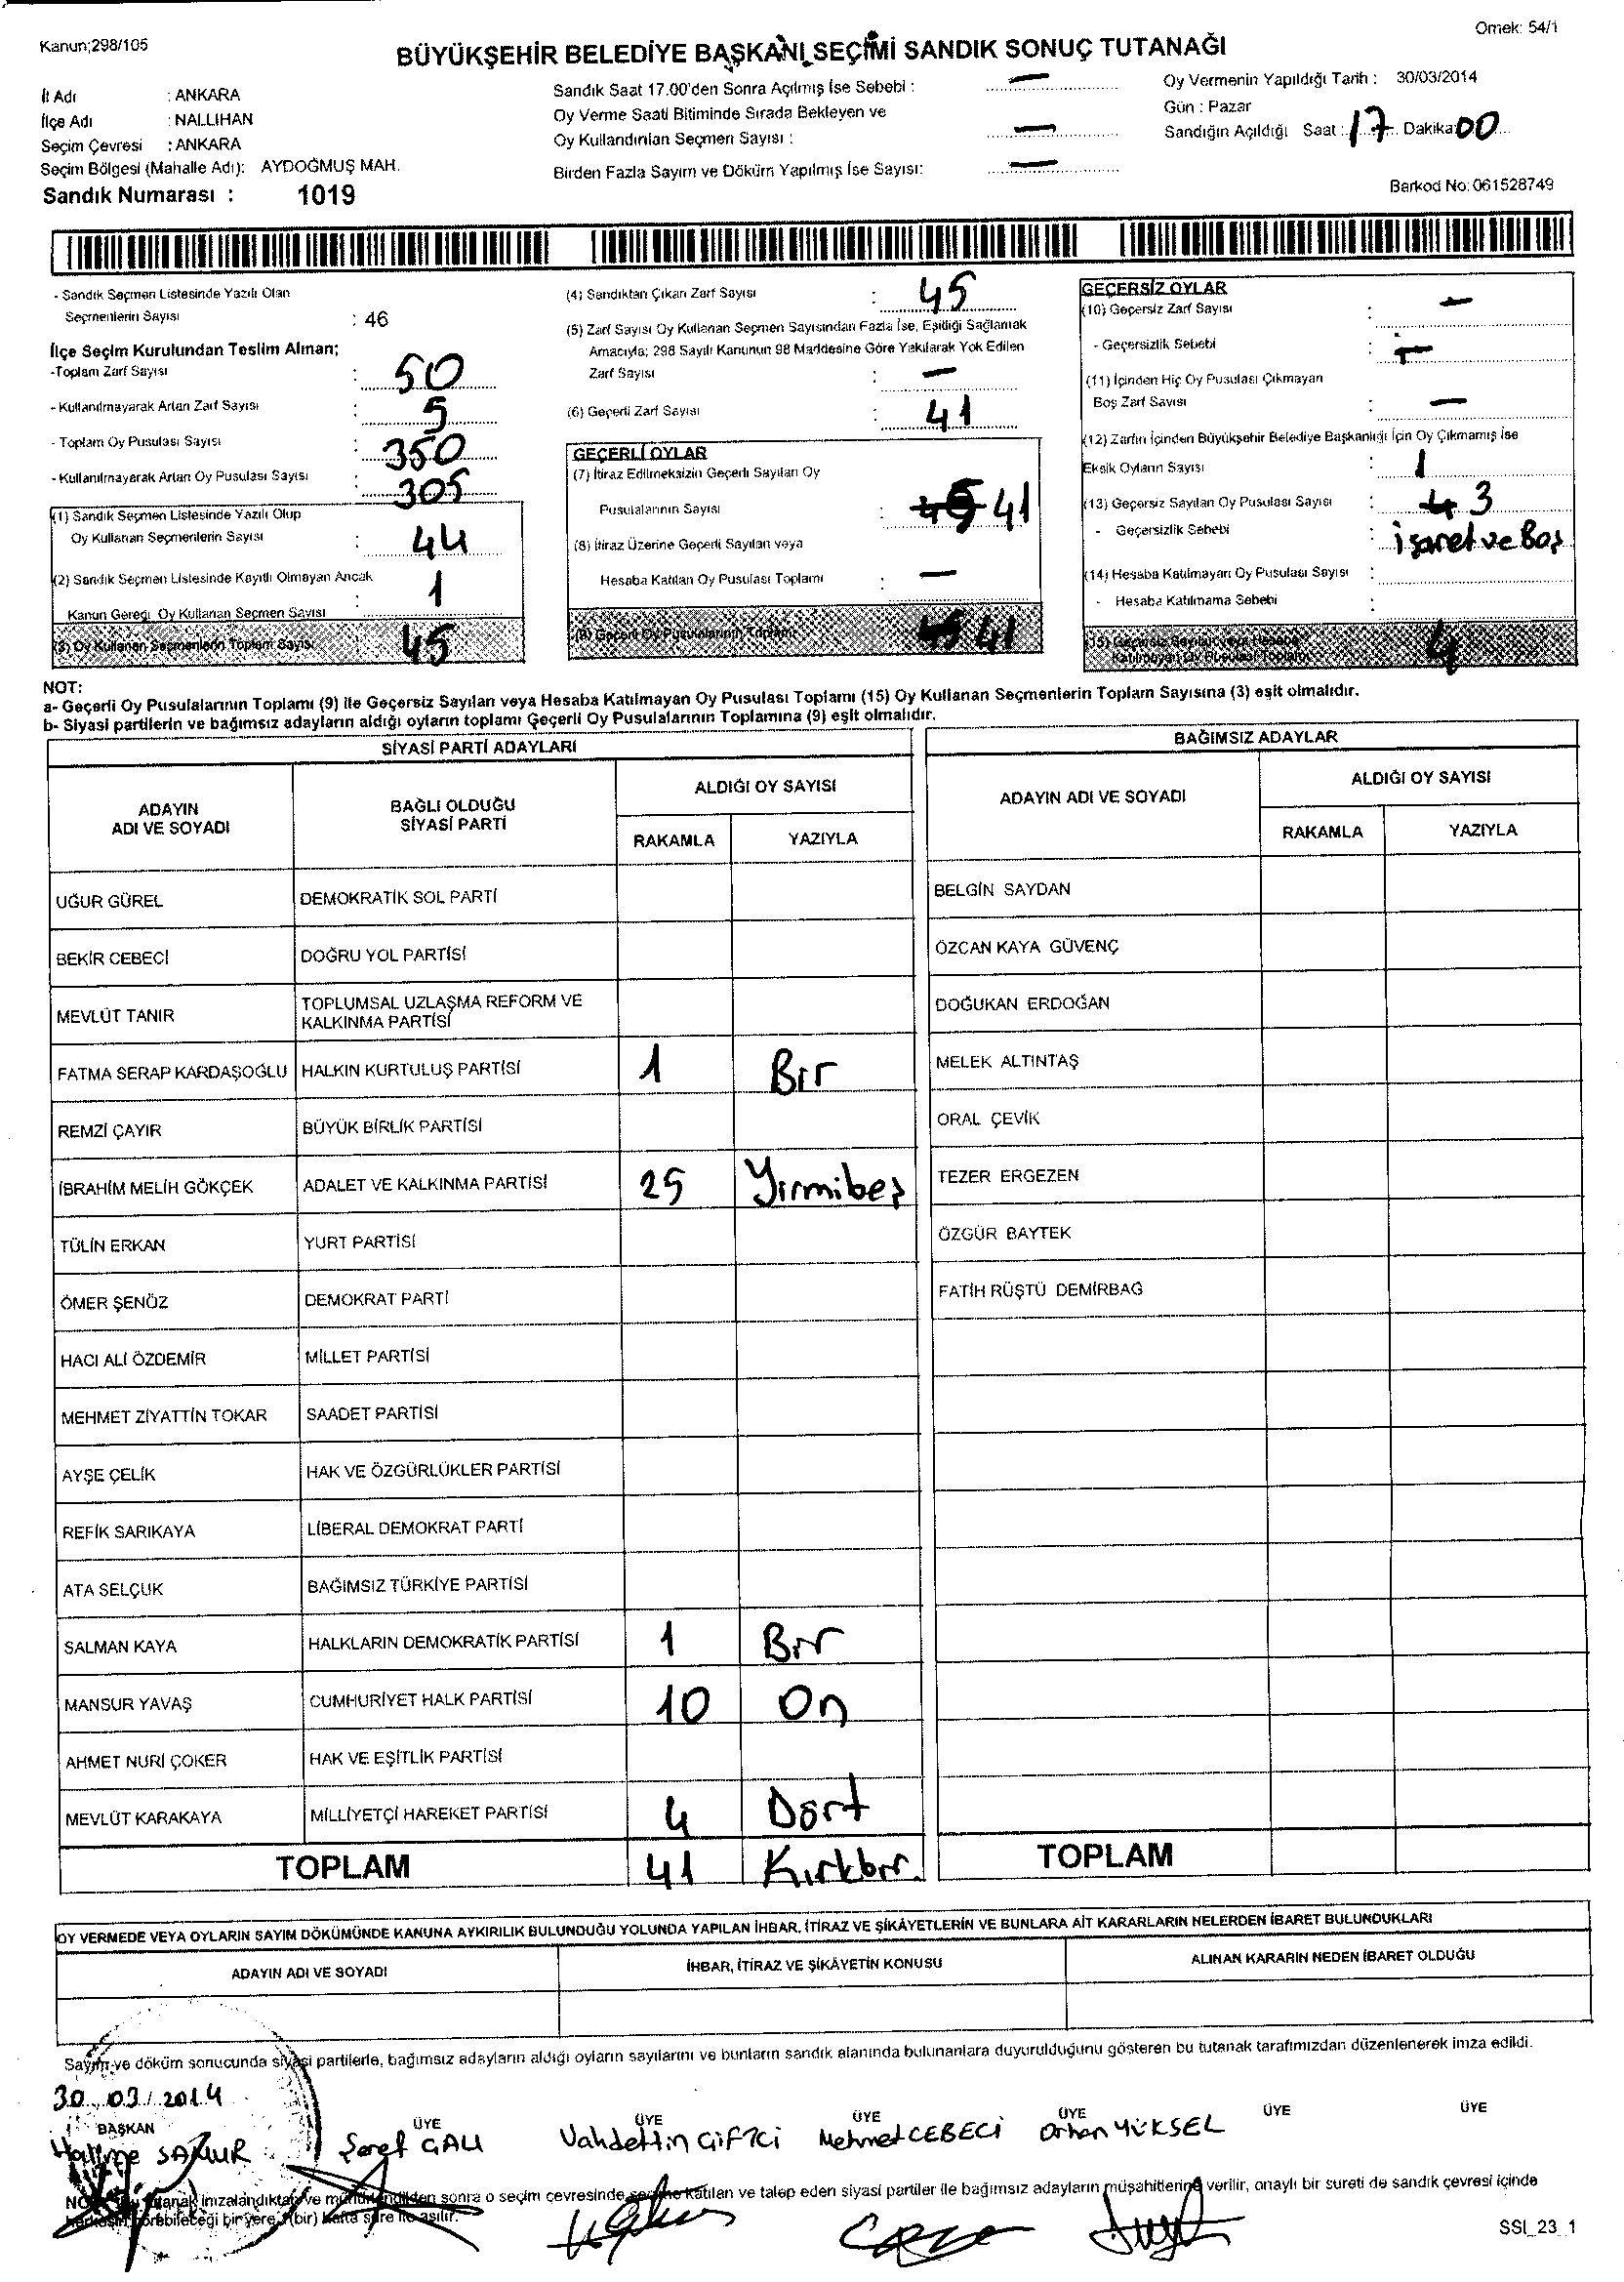 Kanun;298/105
Örnek: 54/1
BÜYÜKŞEHİR BELEDİYE BAŞKANI SEÇİMİ SANDIK SONUÇ TUTANAĞI
İl Adı : ANKARA
İlçe Adı : NALLIHAN
Seçim Çevresi : ANKARA
Seçim Bölgesi (Mahalle Adı): AYDOĞMUŞ MAH.
Sandık Numarası : 1019
Sandık Saat 17.00'den Sonra Açılmış İse Sebebi : —
Oy Verme Saati Bitiminde Sırada Bekleyen ve
Oy Kullandırılan Seçmen Sayısı : —
Birden Fazla Sayım ve Döküm Yapılmış İse Sayısı: —
Oy Vermenin Yapıldığı Tarih : 30/03/2014
Gün : Pazar
Sandığın Açıldığı Saat : 17 Dakika 00
Barkod No: 061528749
- Sandık Seçmen Listesinde Yazılı Olan
Seçmenlerin Sayısı : 46
İlçe Seçim Kurulundan Teslim Alınan;
-Toplam Zarf Sayısı : 50
- Kullanılmayarak Artan Zarf Sayısı : 5
- Toplam Oy Pusulası Sayısı : 350
- Kullanılmayarak Artan Oy Pusulası Sayısı : 305
(1) Sandık Seçmen Listesinde Yazılı Olup
Oy Kullanan Seçmenlerin Sayısı : 44
(2) Sandık Seçmen Listesinde Kayıtlı Olmayan Ancak
Kanun Gereği Oy Kullanan Seçmen Sayısı : 1
(3) Oy Kullanan Seçmenlerin Toplam Sayısı : 45
(4) Sandıktan Çıkan Zarf Sayısı : 45
(5) Zarf Sayısı Oy Kullanan Seçmen Sayısından Fazla İse, Eşitliği Sağlamak
Amacıyla; 298 Sayılı Kanunun 98 Maddesine Göre Yakılarak Yok Edilen
Zarf Sayısı : —
(6) Geçerli Zarf Sayısı : 41
GEÇERLİ OYLAR
(7) İtiraz Edilmeksizin Geçerli Sayılan Oy
Pusulalarının Sayısı : 45 41
(8) İtiraz Üzerine Geçerli Sayılan veya
Hesaba Katılan Oy Pusulası Toplamı : —
(9) Geçerli Oy Pusulalarının Toplamı 45 41
GEÇERSİZ OYLAR
(10) Geçersiz Zarf Sayısı : —
- Geçersizlik Sebebi : —
(11) İçinden Hiç Oy Pusulası Çıkmayan
Boş Zarf Sayısı : —
(12) Zarfın İçinden Büyükşehir Belediye Başkanlığı İçin Oy Çıkmamış İse
Eksik Oyların Sayısı : 1
(13) Geçersiz Sayılan Oy Pusulası Sayısı : 4 3
- Geçersizlik Sebebi : işaret ve Boş
(14) Hesaba Katılmayan Oy Pusulası Sayısı :
- Hesaba Katılmama Sebebi :
(15) Geçersiz Sayılan veya Hesaba
Katılmayan Oy Pusulası Toplamı 4
NOT:
a- Geçerli Oy Pusulalarının Toplamı (9) ile Geçersiz Sayılan veya Hesaba Katılmayan Oy Pusulası Toplamı (15) Oy Kullanan Seçmenlerin Toplam Sayısına (3) eşit olmalıdır.
b- Siyasi partilerin ve bağımsız adayların aldığı oyların toplamı Geçerli Oy Pusulalarının Toplamına (9) eşit olmalıdır.
SİYASİ PARTİ ADAYLARI
ADAYIN ADI VE SOYADI BAĞLI OLDUĞU SİYASİ PARTİ ALDIĞI OY SAYISI
RAKAMLA YAZIYLA
UĞUR GÜREL DEMOKRATİK SOL PARTİ
BEKİR CEBECİ DOĞRU YOL PARTİSİ
MEVLÜT TANIR TOPLUMSAL UZLAŞMA REFORM VE KALKINMA PARTİSİ
FATMA SERAP KARDAŞOĞLU HALKIN KURTULUŞ PARTİSİ 1 Bir
REMZİ ÇAYIR BÜYÜK BİRLİK PARTİSİ
İBRAHİM MELİH GÖKÇEK ADALET VE KALKINMA PARTİSİ 25 Yirmibeş
TÜLİN ERKAN YURT PARTİSİ
ÖMER ŞENÖZ DEMOKRAT PARTİ
HACI ALİ ÖZDEMİR MİLLET PARTİSİ
MEHMET ZİYATTİN TOKAR SAADET PARTİSİ
AYŞE ÇELİK HAK VE ÖZGÜRLÜKLER PARTİSİ
REFİK SARIKAYA LİBERAL DEMOKRAT PARTİ
ATA SELÇUK BAĞIMSIZ TÜRKİYE PARTİSİ
SALMAN KAYA HALKLARIN DEMOKRATİK PARTİSİ 1 Bir
MANSUR YAVAŞ CUMHURİYET HALK PARTİSİ 10 On
AHMET NURİ ÇOKER HAK VE EŞİTLİK PARTİSİ
MEVLÜT KARAKAYA MİLLİYETÇİ HAREKET PARTİSİ 4 Dört
TOPLAM 41 Kırkbir
BAĞIMSIZ ADAYLAR
ADAYIN ADI VE SOYADI ALDIĞI OY SAYISI
RAKAMLA YAZIYLA
BELGİN SAYDAN
ÖZCAN KAYA GÜVENÇ
DOĞUKAN ERDOĞAN
MELEK ALTINTAŞ
ORAL ÇEVİK
TEZER ERGEZEN
ÖZGÜR BAYTEK
FATİH RÜŞTÜ DEMİRBAĞ
TOPLAM
OY VERMEDE VEYA OYLARIN SAYIM DÖKÜMÜNDE KANUNA AYKIRILIK BULUNDUĞU YOLUNDA YAPILAN İHBAR, İTİRAZ VE ŞİKÂYETLERİN VE BUNLARA AİT KARARLARIN NELERDEN İBARET BULUNDUKLARI
ADAYIN ADI VE SOYADI İHBAR, İTİRAZ VE ŞİKÂYETİN KONUSU ALINAN KARARIN NEDEN İBARET OLDUĞU
Sayım ve döküm sonucunda siyasi partilerle, bağımsız adayların aldığı oyların sayılarını ve bunların sandık alanında bulunanlara duyurulduğunu gösteren bu tutanak tarafımızdan düzenlenerek imza edildi.
30.03.2014
BAŞKAN ÜYE ÜYE ÜYE ÜYE ÜYE ÜYE
Halime Şeref GALI Vahdettin ÇİFTCİ Mehmet CEBECİ Orhan YÜKSEL
NOT: Bu tutanak imzalandıktan ve mühürlendikten sonra o seçim çevresinde seçime katılan ve talep eden siyasi partiler ile bağımsız adayların müşahitlerine verilir, onaylı bir sureti de sandık çevresi içinde
herkesin görebileceği bir yere 1 (bir) hafta süre ile asılır.
SSI_23_1